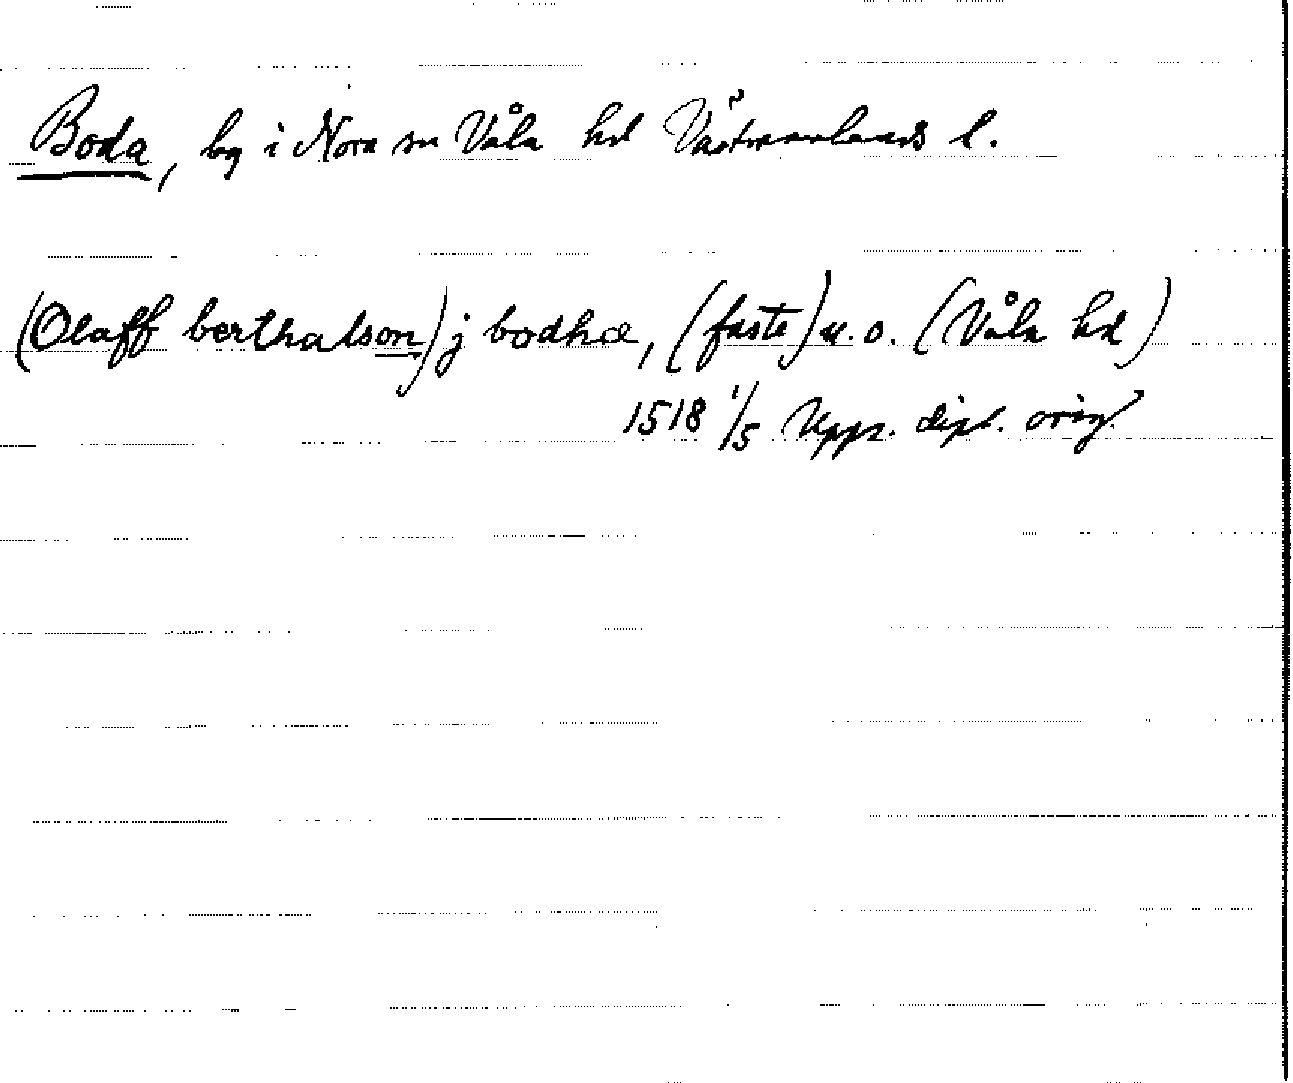 Boda, by i Nora sn Våla hd Västmanlands l.
(Olaff berthalson) j bodhæ, (faste) u. o. (Våla hd)
1518 1/5 Upps. dipl. orig.